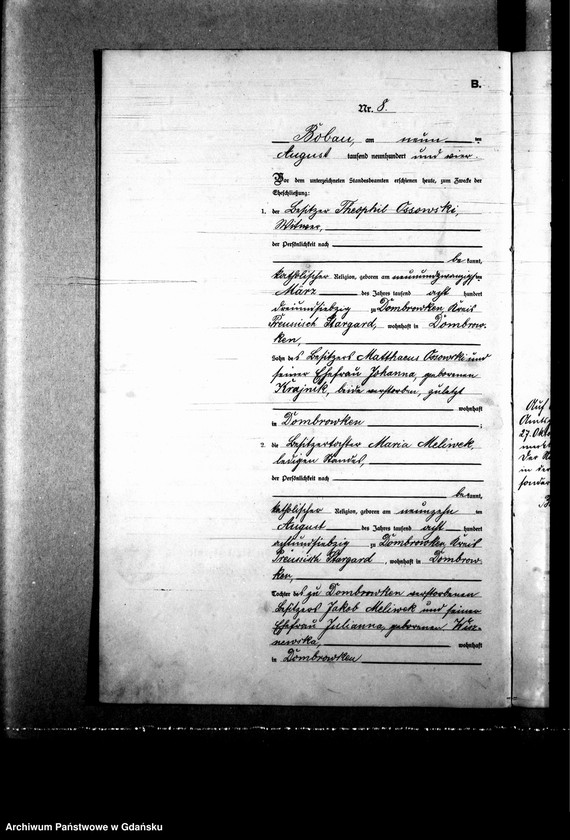 B.
Nr. 8.
Bobau, am neun ten
August tausend neunhundert und vier.
Vor dem unterzeichneten Standesbeamten erschienen heute, zum Zwecke der
Eheschließung:
1. der Besitzer Theophil Ossowski,
Witwer,
der Persönlichkeit nach
be kannt,
katholischer Religion, geboren am neunundzwanzigsten
März des Jahres tausend acht hundert
dreiundsiebzig zu Dombrowken, Kreis
Preussisch Stargard, wohnhaft in Dombrow-
ken,
Sohn des Besitzers Matthaeus Ossowski und
seiner Ehefrau Johanna, geborenen
Krajnik, beide verstorben, zuletzt
wohnhaft
in Dombrowken ;
2. die Besitzertochter Maria Meliwek,
ledigen Standes,
der Persönlichkeit nach
be kannt,
katholischer Religion, geboren am neunzehn ten
August des Jahres tausend acht hundert
achtundsiebzig zu Dombrowken, Kreis
Preussisch Stargard, wohnhaft in Dombrow-
ken,
Tochter des zu Dombrowken verstorbenen
Besitzers Jakob Meliwek und seiner
Ehefrau Julianna, geborenen
wohnhaft
in Dombrowken
Auf
27. Okt
Der
in der
Archiwum Państwowe w Gdańsku